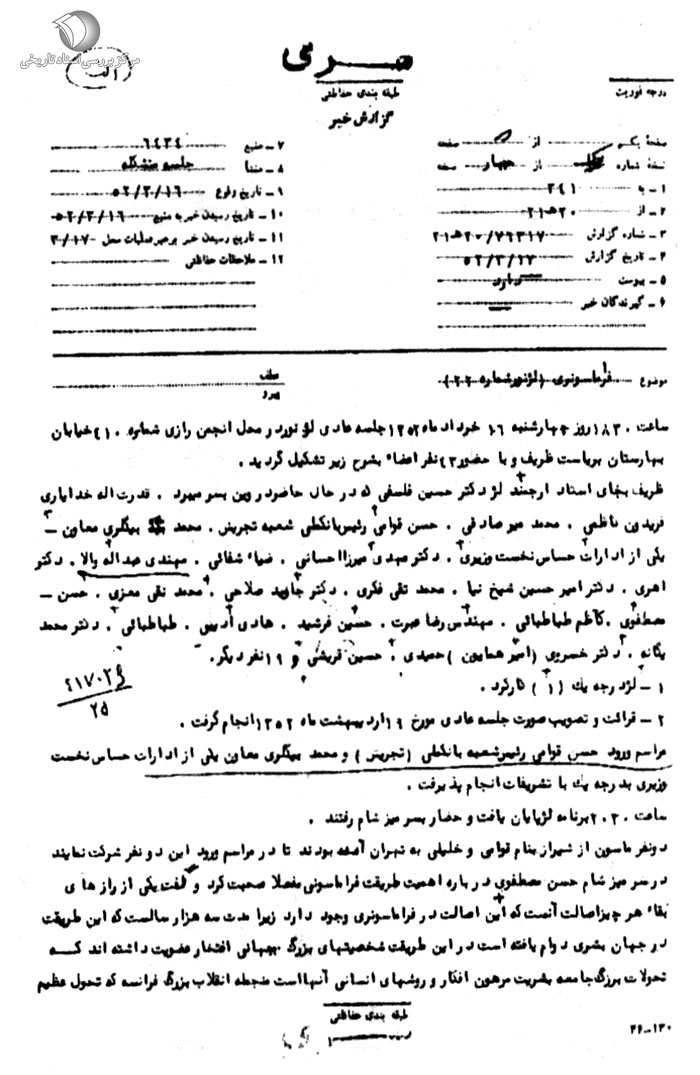 مرکز بررسی اسناد تاریخی
الف
سری
طبقه بندی حفاظتی
گزارش خبر
درجه فوریت
صفحه یکم از صفحه
نسخه شماره یک از چهار نسخه
۱ ـ به ۳۴۱
۲ ـ از ۲۰هـ۲۱
۳ ـ شماره گزارش ۲۰/۷۶۳۱۷هـ۲۱
۴ ـ تاریخ گزارش ۵۲/۳/۱۷
۵ ـ پیوست دارد
۶ ـ گیرندگان خبر
۷ ـ منبع ۶۴۳۴
۸ ـ منشا جلسه متشکله
۹ ـ تاریخ وقوع ۵۲/۳/۱۶
۱۰ ـ تاریخ رسیدن خبر به منبع ۵۲/۳/۱۶
۱۱ ـ تاریخ رسیدن خبر برهبر عملیات محل ۳/۱۷
۱۲ ـ ملاحظات حفاظتی
موضوع فراماسونری (لژ نور شماره ۲۲)
عطف
پیرو
ساعت ۱۸۳۰ روز چهارشنبه ۱۶ خرداد ماه ۱۳۵۲ جلسه عادی لژ نور در محل انجمن رازی شماره ۴۱۰ خیابان
بهارستان بریاست ظریف و با حضور ۴۳ نفر اعضاء بشرح زیر تشکیل گردید .
ظریف بجای استاد ارجمند لژ دکتر حسین فلسفی که در حال حاضر در وین بسر میبرد . قدرت اله خدایاری
فریدون ناظمی . محمد میرصادقی . حسن قوامی رئیس بانک ملی شعبه تجریش . محمد بیگلری معاون ـ
یکی از ادارات حساس نخست وزیری . دکتر مهدی میرزا احسانی . ضیاء شفائی . مهندس عبداله والا . دکتر
اهری . دکتر امیر حسین شیخ نیا . محمد تقی فکری . دکتر جاوید صلاحی . محمد نقی معزی . حسن ـ
مصطفوی . کاظم طباطبائی . مهندس رضا عبرت . حسین فرشید . هادی ادیبی . طباطبائی . دکتر محمد
یگانه . دکتر خسروی (امیر همایون) حمیدی . حسین قریشی و ۱۹ نفر دیگر .
۴۱۷۰۲۶
۲۵
۱ ـ لژ درجه یک (۱) کارکرد .
۲ ـ قرائت و تصویب صورت جلسه عادی مورخ ۱۹ اردیبهشت ماه ۱۳۵۲ انجام گرفت .
مراسم ورود حسن قوامی رئیس شعبه بانک ملی (تجریش) و محمد بیگلری معاون یکی از ادارات حساس نخست
وزیری بدرجه یک با تشریفات انجام پذیرفت .
ساعت ۲۰۳۰ برنامه لژ پایان یافت و حضار بسر میز شام رفتند .
دو نفر ماسون از شیراز بنام قوامی و خلیلی به تهران آمده بودند تا در مراسم ورود این دو نفر شرکت نمایند
در سر میز شام حسن مصطفوی درباره اهمیت طریقت فراماسونی مفصلا صحبت کرد و گفت یکی از رازهای
بقاء هر چیز اصالت آنست که این اصالت در فراماسونری وجود دارد زیرا مدت سه هزار سالست که این طریقت
در جهان بشری دوام یافته است در این طریقت شخصیتهای بزرگ جهانی افتخار عضویت داشته اند کسه
تحولات بزرگ جامعه بشریت مرهون افکار و روشهای انسانی آنها است منجمله انقلاب بزرگ فرانسه که تحول عظیم
طبقه بندی حفاظتی
۳۶ـ۱۳۰